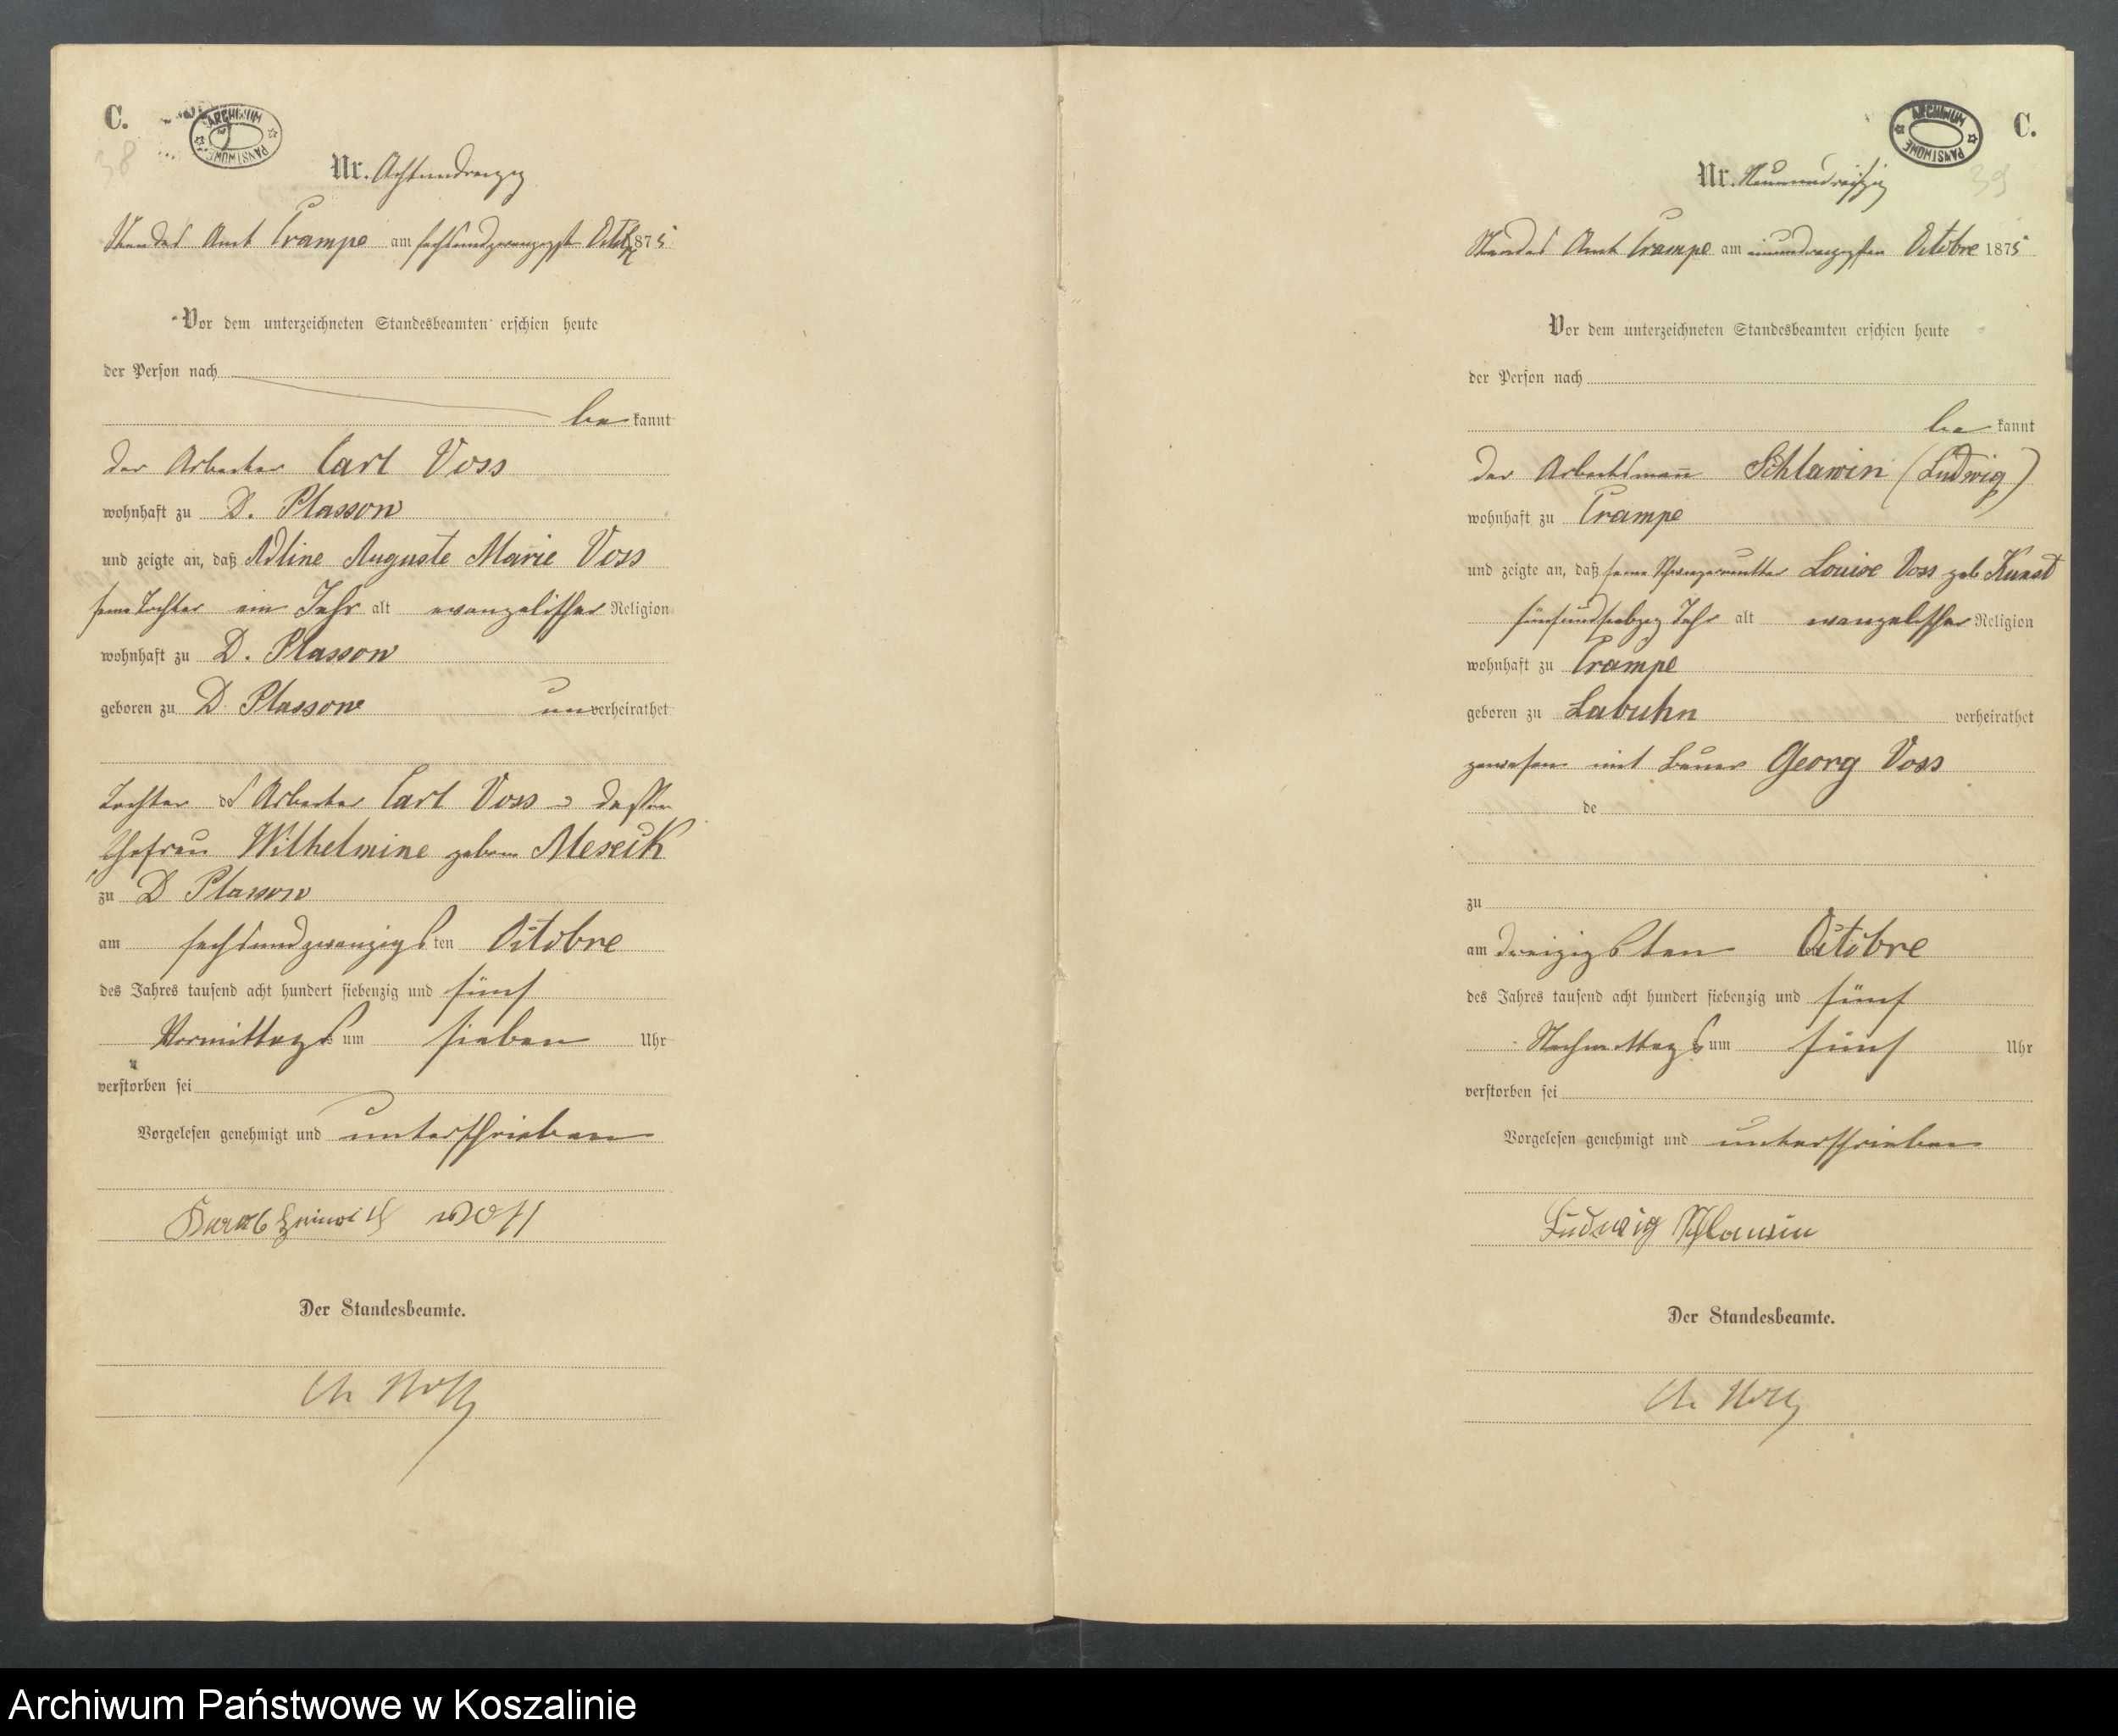 C.
ARCHIWUM PAŃSTWOWE
38
Nr. Achtunddreizig
Standes Amt Trampe am sechsundzwanzigst Octob 1875
Vor dem unterzeichneten Standesbeamten erschien heute
der Person nach
be kannt
der Arbeiter Carl Voss
wohnhaft zu D. Plassow
und zeigte an, daß Adline Auguste Marie Voss
seine Tochter ein Jahr alt evangelischer Religion
wohnhaft zu D. Plassow
geboren zu D. Plassow unverheirathet
Tochter des Arbeiter Carl Voss u dessen
Ehefrau Wilhelmine geboren Meseck
zu D Plassow
am sechsundzwanzigsten Octobre
des Jahres tausend acht hundert siebenzig und fünf
Vormittags um sieben Uhr
verstorben sei
Vorgelesen genehmigt und unterschrieben
Der Standesbeamte.
C.
ARCHIWUM PAŃSTWOWE
39
Nr. Neununddreißig
Standes Amt Trampe am einunddreizigsten Octobre 1875
Vor dem unterzeichneten Standesbeamten erschien heute
der Person nach
be kannt
der Arbeitsmann Schlawin (Ludwig)
wohnhaft zu Trampe
und zeigte an, daß seine Schwiegermutter Louise Voss geb Kunst
fünfundsiebzig Jahr alt evangelischer Religion
wohnhaft zu Trampe
geboren zu Labuhn verheirathet
gewesen mit Bauer Georg Voss
de
zu
am dreizigsten Octobre
des Jahres tausend acht hundert siebenzig und fünf
Nachmittags um fünf Uhr
verstorben sei
Vorgelesen genehmigt und unterschrieben
Ludwig Schlawin
Der Standesbeamte.
Archiwum Państwowe w Koszalinie